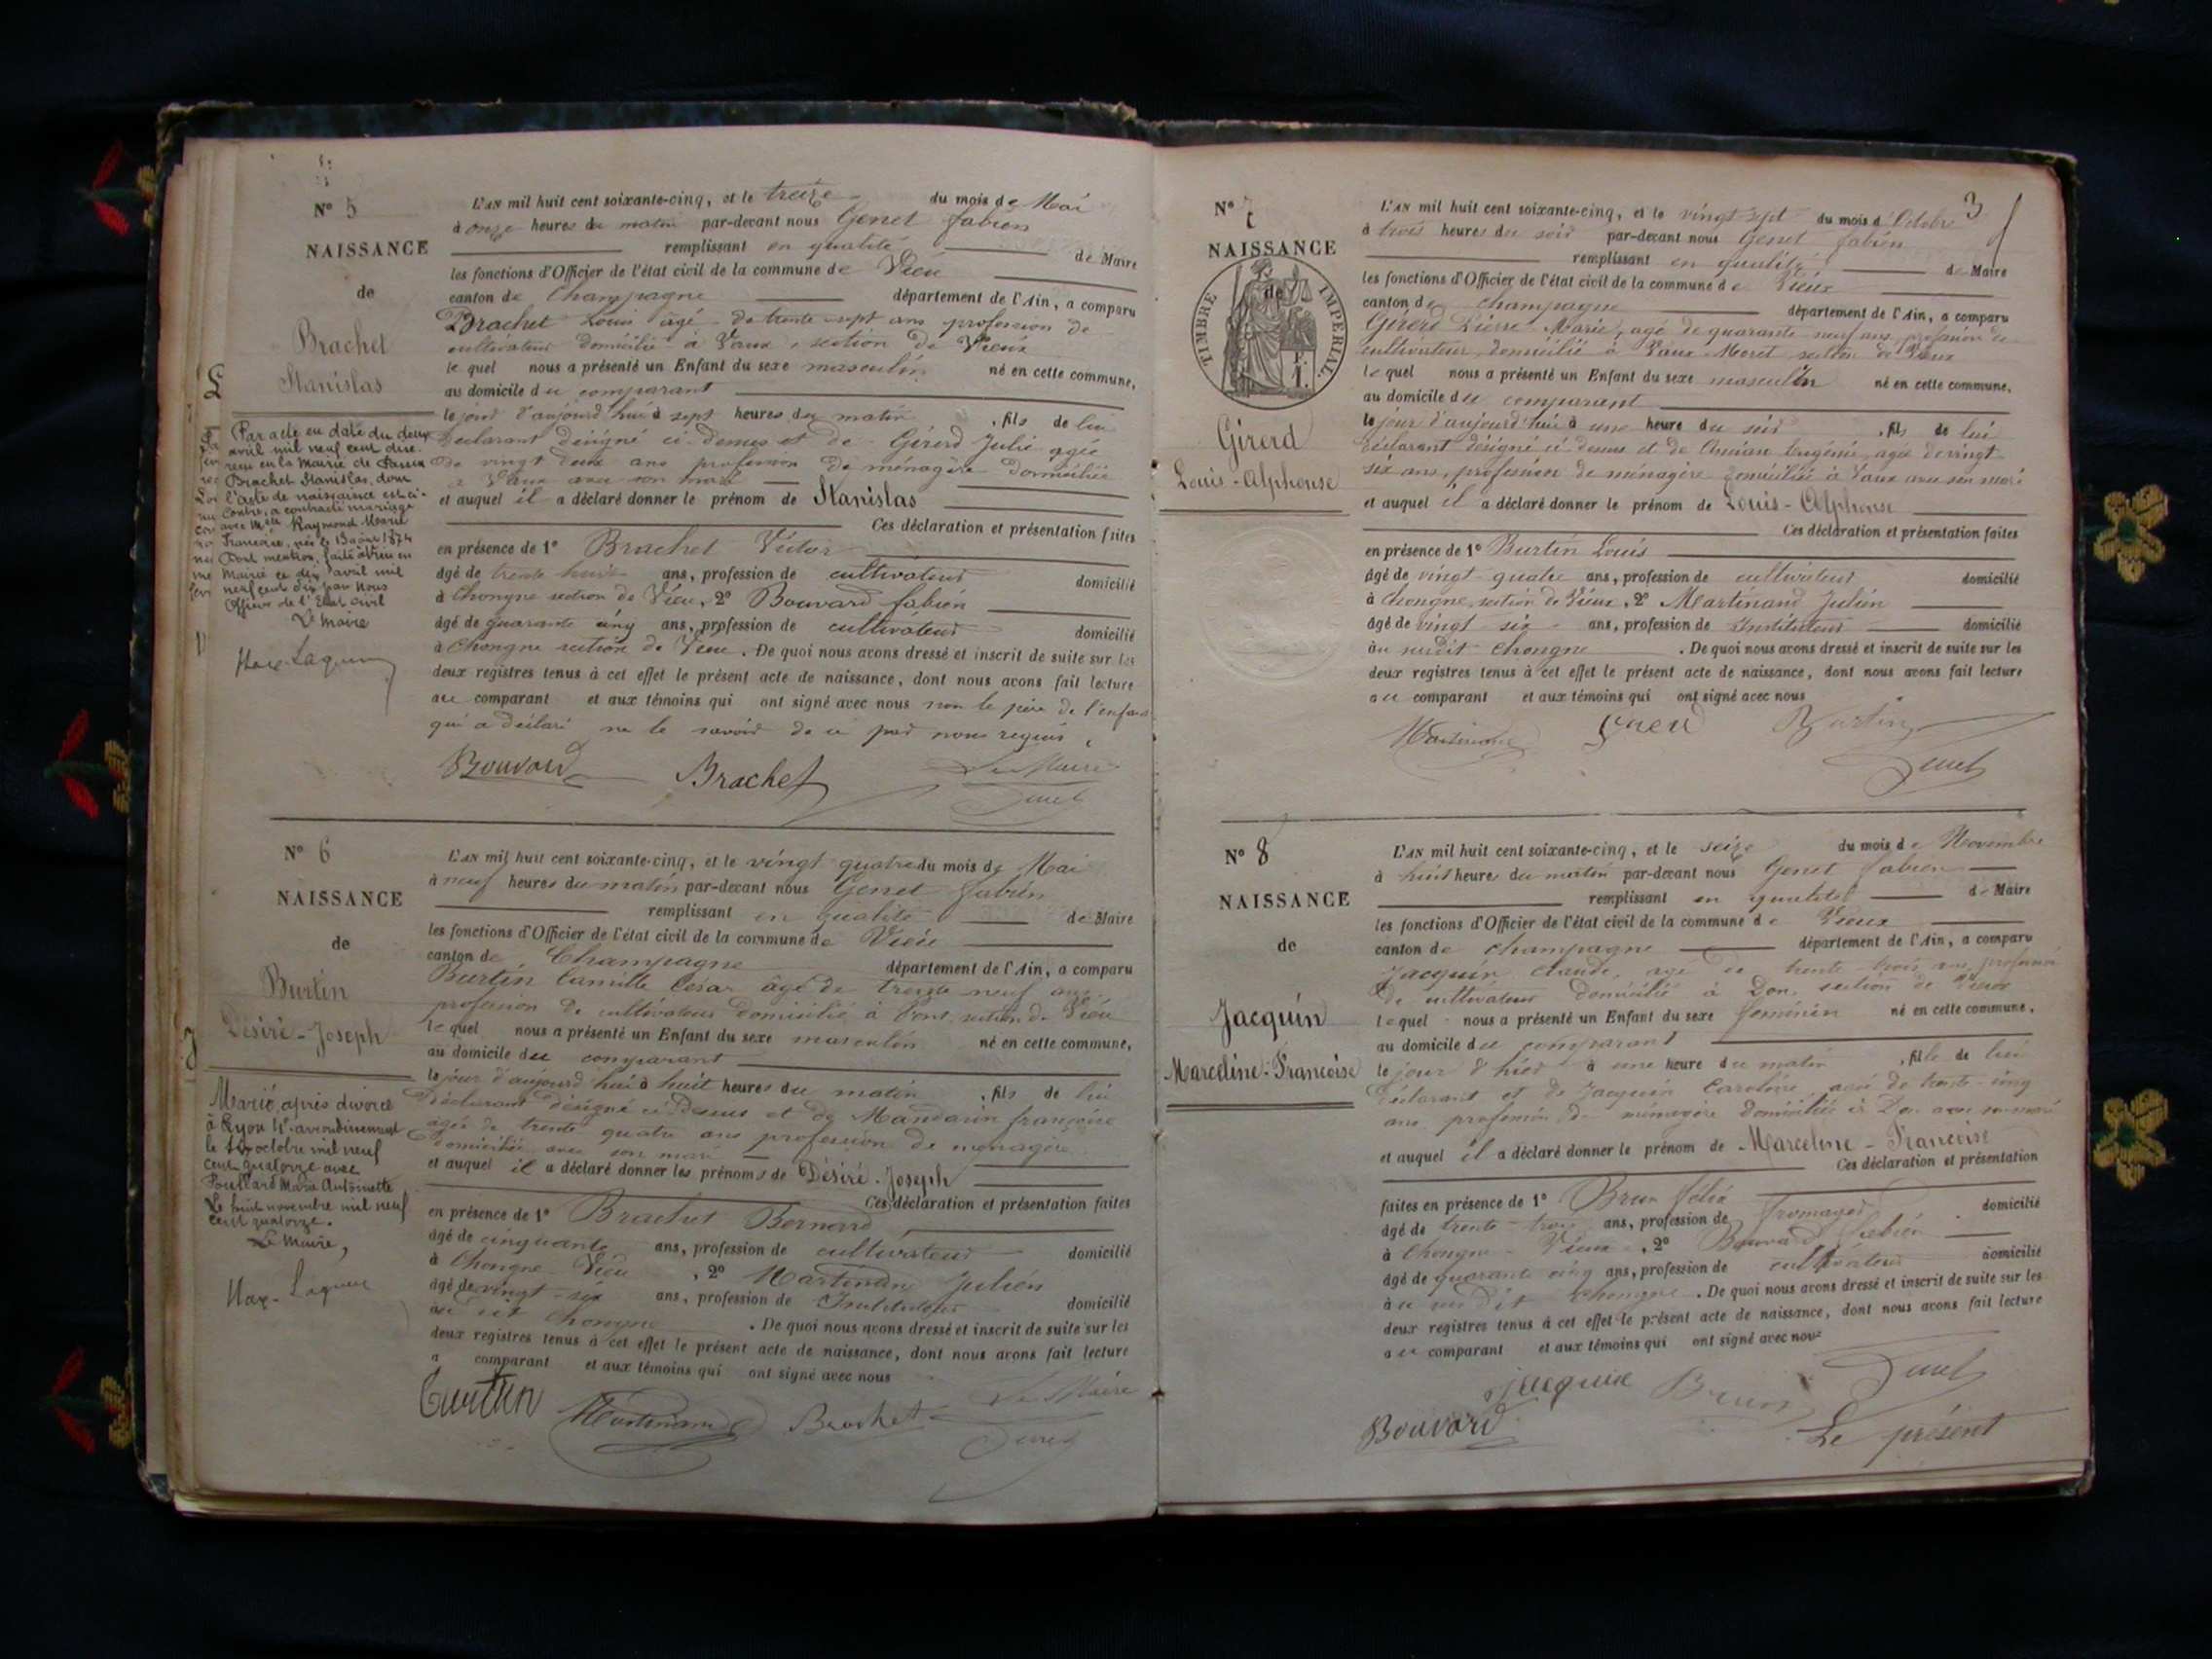 N° 5
NAISSANCE
de
Brachet
Stanislas
Par acte en date du deux
avril mil neuf cent dix
reçu en la Mairie de
Brachet Stanislas, dont
l'acte de naissance est ci-
contre, a contracté mariage
avec Mlle Raymond Marie
Francoise, née le 13 août 1874
Dont mention, faite à Vieu en
Mairie ce dix avril mil
neuf cent dix par nous
Officier de l'Etat civil
Le Maire
L'AN mil huit cent soixante-cinq, et le treize du mois de Mai
à onze heures du matin par-devant nous Genet fabien
remplissant en qualité de Maire
les fonctions d'Officier de l'état civil de la commune de Vieu
canton de Champagne département de l'Ain, a comparu
Brachet Louis âgé de trente sept ans profession de
cultivateur domicilié à Vaux, section de Vieux
lequel nous a présenté un Enfant du sexe masculin né en cette commune,
au domicile du comparant
le jour d'aujourd'hui à sept heures du matin, fils de lui
déclarant désigné ci-dessus et de Gérerd Julie agée
de vingt deux ans profession de ménagère domiciliée
à Vaux avec son mari
et auquel il a déclaré donner le prénom de Stanislas
Ces déclaration et présentation faites
en présence de 1° Brachet Victor
âgé de trente huit ans, profession de cultivateur domicilié
à Chongne section de Vieu, 2° Bouvard fabien
âgé de quarante cinq ans, profession de cultivateur domicilié
à Chongne section de Vieu. De quoi nous avons dressé et inscrit de suite sur les
deux registres tenus à cet effet le présent acte de naissance, dont nous avons fait lecture
au comparant et aux témoins qui ont signé avec nous non le père de l'enfant
qui a déclaré ne le savoir de ce par nous requis.
Bouvard Brachet Le Maire
Genet
N° 6
NAISSANCE
de
Burtin
Désiré-Joseph
Marié, après divorce
à Lyon 4e arrondissement
le octobre mil neuf
cent quatorze avec
Marie Antoinette
Le huit novembre mil neuf
cent quatorze.
Le Maire,
L'AN mil huit cent soixante-cinq, et le vingt quatre du mois de Mai
à neuf heures du matin par-devant nous Genet fabien
remplissant en qualité de Maire
les fonctions d'Officier de l'état civil de la commune de Vieu
canton de Champagne département de l'Ain, a comparu
Burtin Camille César âgé de trente neuf ans
profession de cultivateur domicilié à section de Vieu
lequel nous a présenté un Enfant du sexe masculin né en cette commune,
au domicile du comparant
le jour d'aujourd'hui à huit heures du matin, fils de lui
Déclarant désigné ci dessus et de Mandarin françoise
agée de trente quatre ans profession de ménagère
domiciliée avec son mari
et auquel il a déclaré donner les prénoms de Désiré-Joseph
Ces déclaration et présentation faites
en présence de 1° Brachet Bernard
âgé de cinquante ans, profession de cultivateur domicilié
à Chongne Vieu, 2° Martinand Julien
âgé de vingt-six ans, profession de Instituteur domicilié
au dit Chongne. De quoi nous avons dressé et inscrit de suite sur les
deux registres tenus à cet effet le présent acte de naissance, dont nous avons fait lecture
a comparant et aux témoins qui ont signé avec nous
Burtin Martinand Brachet Le Maire
Genet
3
N° 7
NAISSANCE
de
TIMBRE IMPERIAL
Girerd
Louis-Alphonse
L'AN mil huit cent soixante-cinq, et le vingt sept du mois d'Octobre
à trois heures du soir par-devant nous Genet fabien
remplissant en qualité de Maire
les fonctions d'Officier de l'état civil de la commune de Vieux
canton de Champagne département de l'Ain, a comparu
Girerd Pierre Marie, agé de quarante neuf ans, profession de
cultivateur, domicilié à Vaux-Moret section de Vieux
lequel nous a présenté un Enfant du sexe masculin né en cette commune,
au domicile du comparant
le jour d'aujourd'hui à une heure du soir, fils de lui
déclarant désigné ci dessus et de Eugénie, agée de vingt
six ans, profession de ménagère domiciliée à Vaux avec son mari
et auquel il a déclaré donner le prénom de Louis-Alphonse
Ces déclaration et présentation faites
en présence de 1° Burtin Louis
âgé de vingt quatre ans, profession de cultivateur domicilié
à Chongne, section de Vieux, 2° Martinand Julien
âgé de vingt six ans, profession de Instituteur domicilié
au susdit Chongne. De quoi nous avons dressé et inscrit de suite sur les
deux registres tenus à cet effet le présent acte de naissance, dont nous avons fait lecture
au comparant et aux témoins qui ont signé avec nous
Martinand Burtin
Genet
N° 8
NAISSANCE
de
Jacquin
Marceline-Francoise
L'AN mil huit cent soixante-cinq, et le seize du mois de Novembre
à huit heures du matin par-devant nous Genet fabien
remplissant en qualité de Maire
les fonctions d'Officier de l'état civil de la commune de Vieux
canton de Champagne département de l'Ain, a comparu
Jacquin Claude, agé de trente trois ans, profession
de cultivateur domicilié à Don, section de Vieux
lequel nous a présenté un Enfant du sexe féminin né en cette commune,
au domicile du comparant
le jour d'hier à une heure du matin, fille de lui
déclarant et de Jacquin Caroline, agée de trente-cinq
ans profession de ménagère domiciliée à Don avec son mari
et auquel il a déclaré donner le prénom de Marceline-Francoise
Ces déclaration et présentation
faites en présence de 1° Brun félix
âgé de trente-trois ans, profession de fromager domicilié
à Chongne Vieux, 2° Bouvard fabien
âgé de quarante cinq ans, profession de cultivateur domicilié
au susdit Chongne. De quoi nous avons dressé et inscrit de suite sur les
deux registres tenus à cet effet le présent acte de naissance, dont nous avons fait lecture
au comparant et aux témoins qui ont signé avec nous
Jacquin Brun Genet
Bouvard Le présent